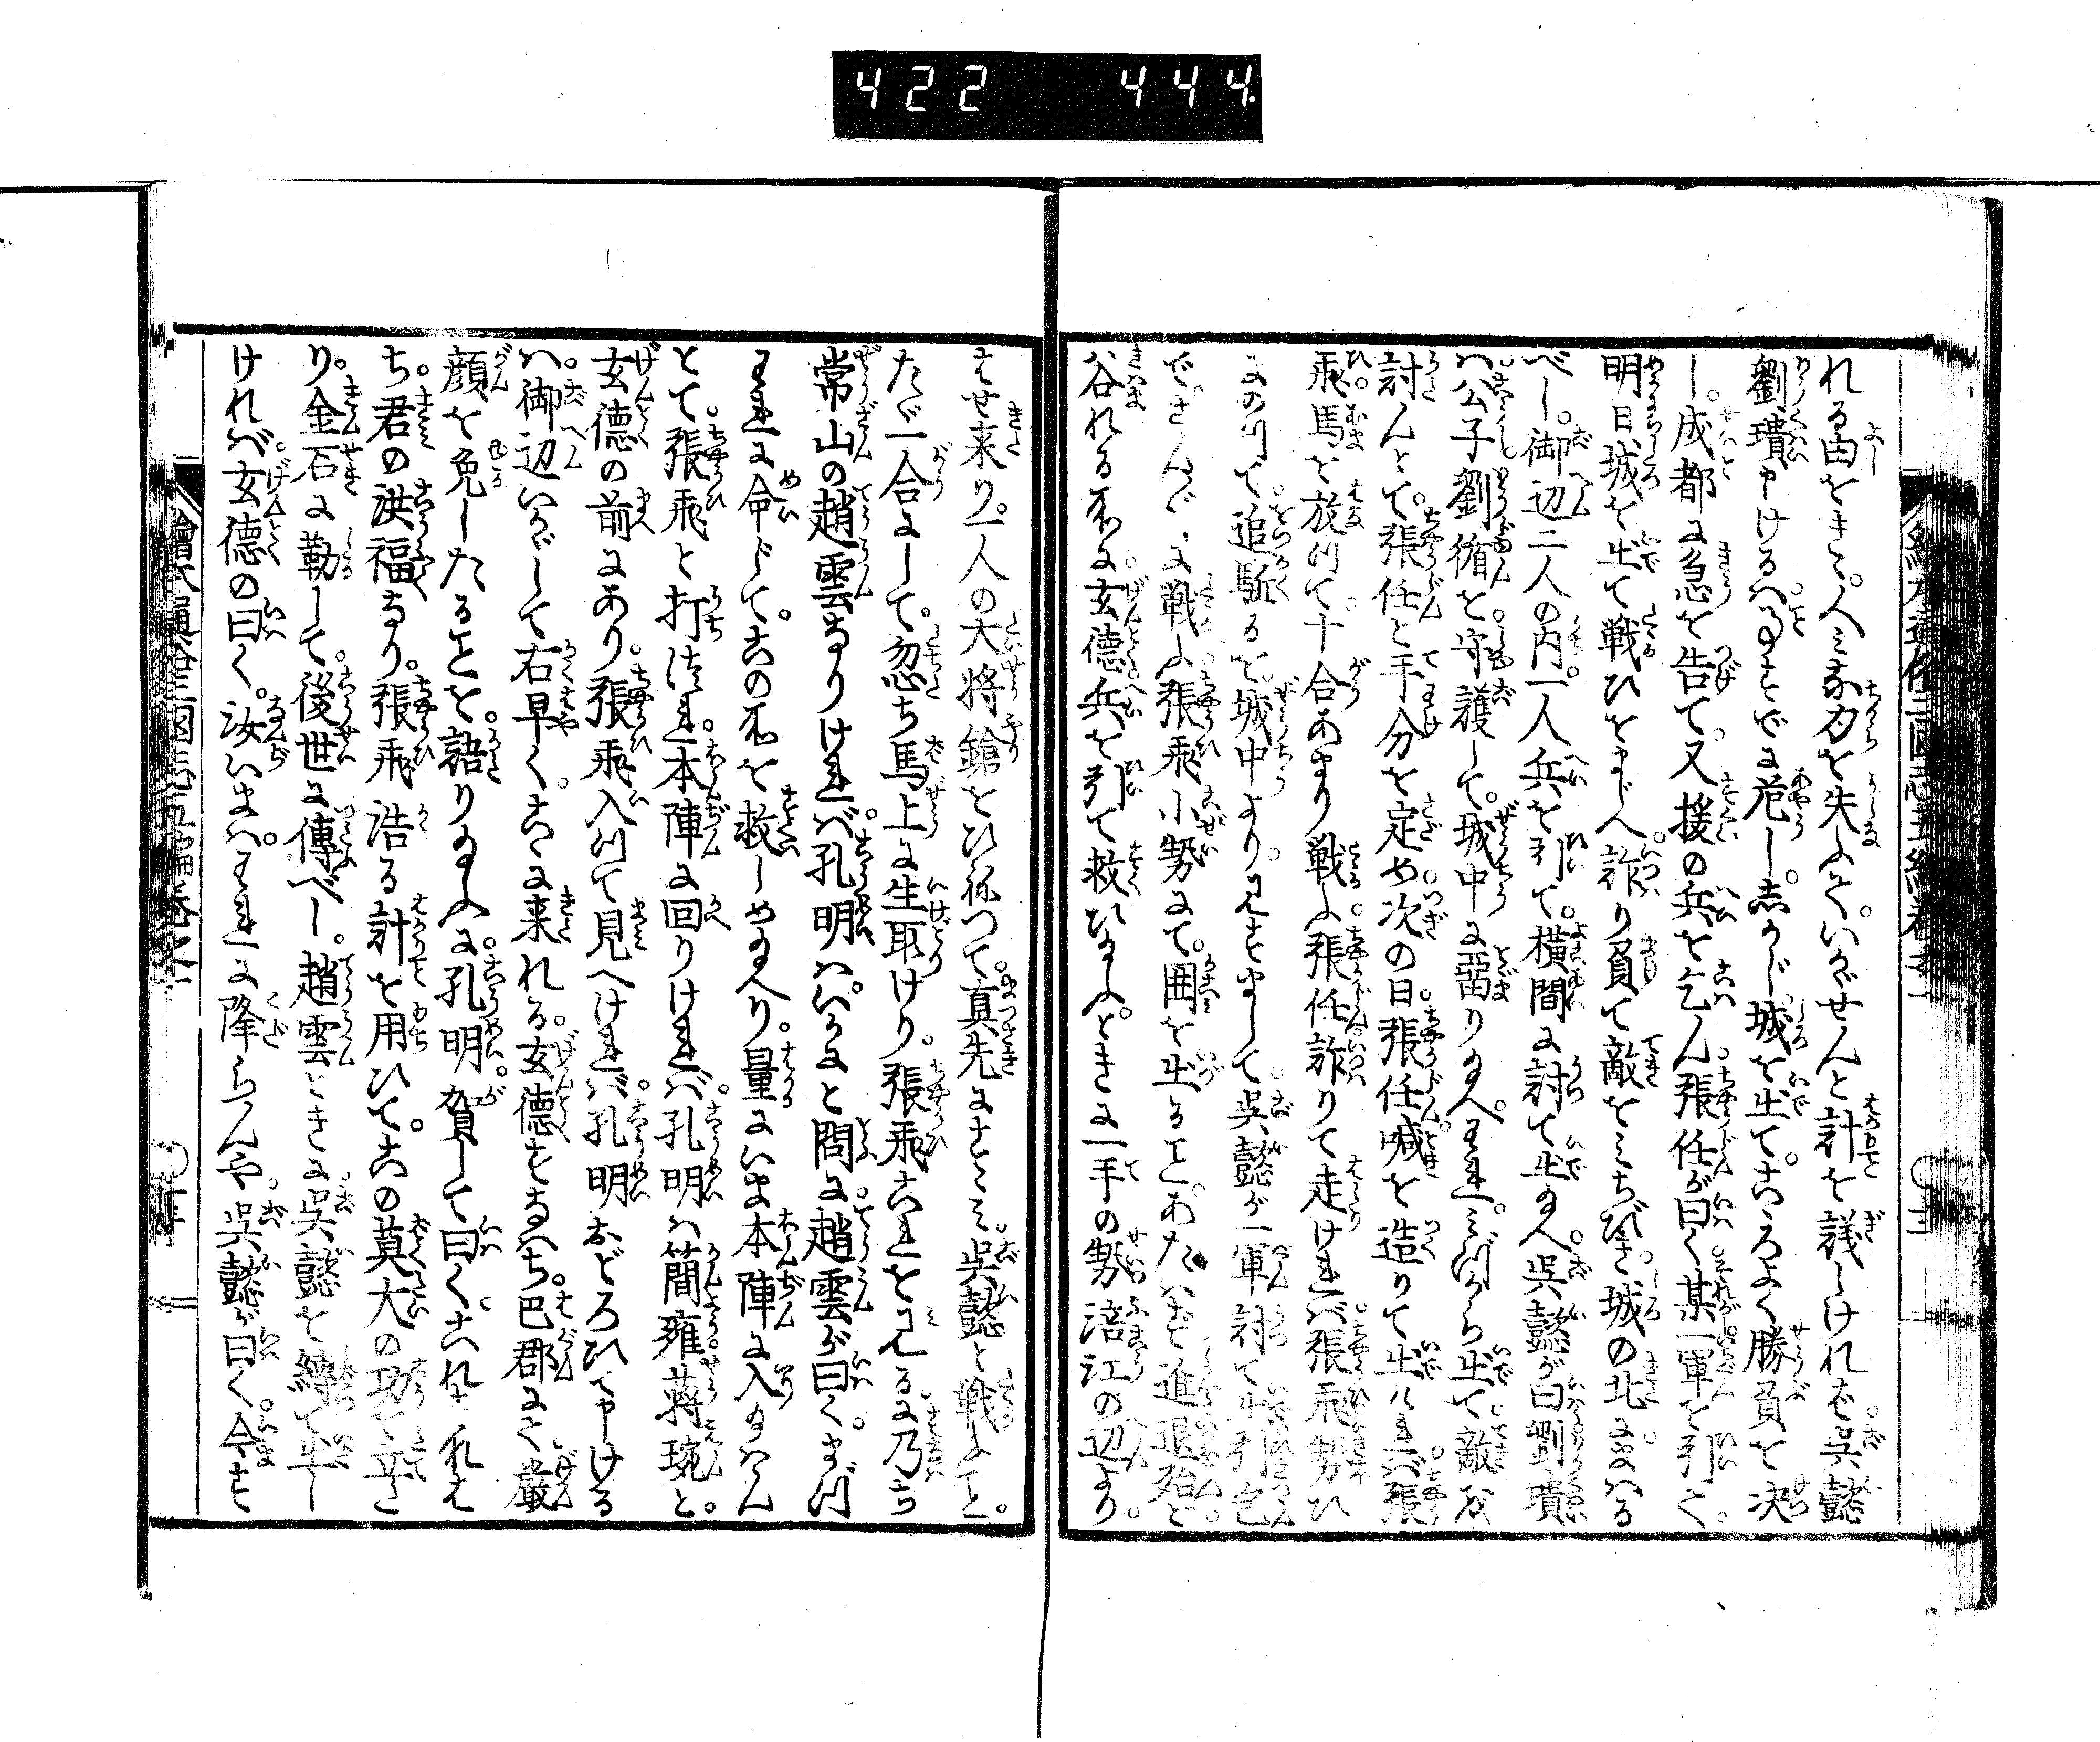 422 444
れる由をきゝ。人みな力を失ふて。いかゞせんと計を議しければ。呉懿
劉璝申けるハ。事すでに危し。志かじ城を出て。こゝろよく勝負を决
し。成都に急を告て。又援の兵を乞ん。張任が曰く某一軍を引て。
明日城を出て戦ひをまじへ。詐り負て敵をみちびき。城の北にまハる
べし。御辺二人の内。一人兵を引て。橫間に討て出給へ。呉懿が曰劉璝
ハ公子劉循を守護して。城中に畱り給へ。それがしみづから出て。敵を
討んとて。張任と手分を定め。次の日。張任喊を造りて出けれバ。張
飛馬を放つて。十合あまり戦ふ。張任詐りて走けれバ。張飛勢ひ
にのりて追駈るを。城中より見すまして。呉懿が一軍討て出引包
で。さんざんに戦ふ。張飛小勢にて。囲を出ることあたハず。進退殆ど
谷れる所に。玄德兵を引て救ひ給ふ。ときに一手の勢涪江の辺より。
はせ来り。一人の大将鎗をひねつて。真先にすゝみ。呉懿と戦ふこと。
たゞ一合にして。忽ち馬上に生取けり。張飛これを見るに乃ち
常山の趙雲なりけれバ。孔明ハ。いかにと問に。趙雲が曰く。まづ
それに命じて。この所を救しめ給へり。量にいま本陣に入給ハん
とて。張飛と打つれ。本陣に回りけれバ。孔明ハ簡雍蒋琬と。
玄德の前にあり。張飛入つて見へけれバ。孔明おどろひて申ける
ハ。御辺いかゞして右早く。こゝに来れる。玄德すなハち。巴郡にて嚴
顔を免したることを。語り給ふに。孔明。賀して曰く。これすなハ
ち。君の洪福なり。張飛浩る計を用ひて。この莫大の功を立た
り。金石に勒して。後世に傳べし。趙雲ときに呉懿を縛て出し
けれバ。玄德の曰く。汝いまハ。それに降らんや。呉懿が曰く。今す